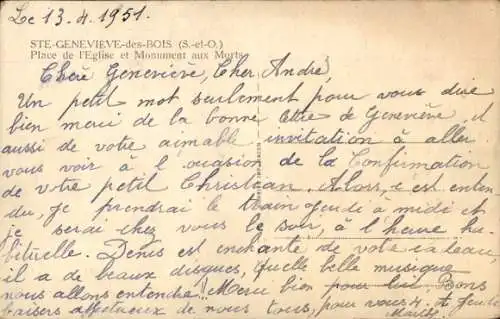 Le 13.4.1951.
STE-GENEVIEVE-des-BOIS (S.-et-O.)
Place de l'Eglise et Monument aux Morts
Chère Geneviève, Cher André,
Un petit mot seulement pour vous dire
bien merci de la bonne lettre de Geneviève et
aussi de votre aimable invitation à aller
vous voir à l'occasion de la Confirmation
de votre petit Christian. Alors, c'est enten
du, je prendrai le train jeudi à midi et
je serai chez vous le soir, à l'heure ha-
bituelle. Denis est enchanté de votre cadeau,
il a de beaux disques. Quelle belle musique
nous allons entendre! Merci bien pour lui. Bons
baisers affectueux de nous tous, pour vous 4. A jeudi